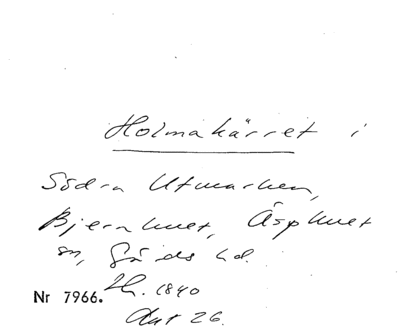 Holmakärret i
Södra Utmarken,
Bjernhult, Äsphult
sn, Gärds hd.
Nr 7966. Lh. 1840
Akt 26.